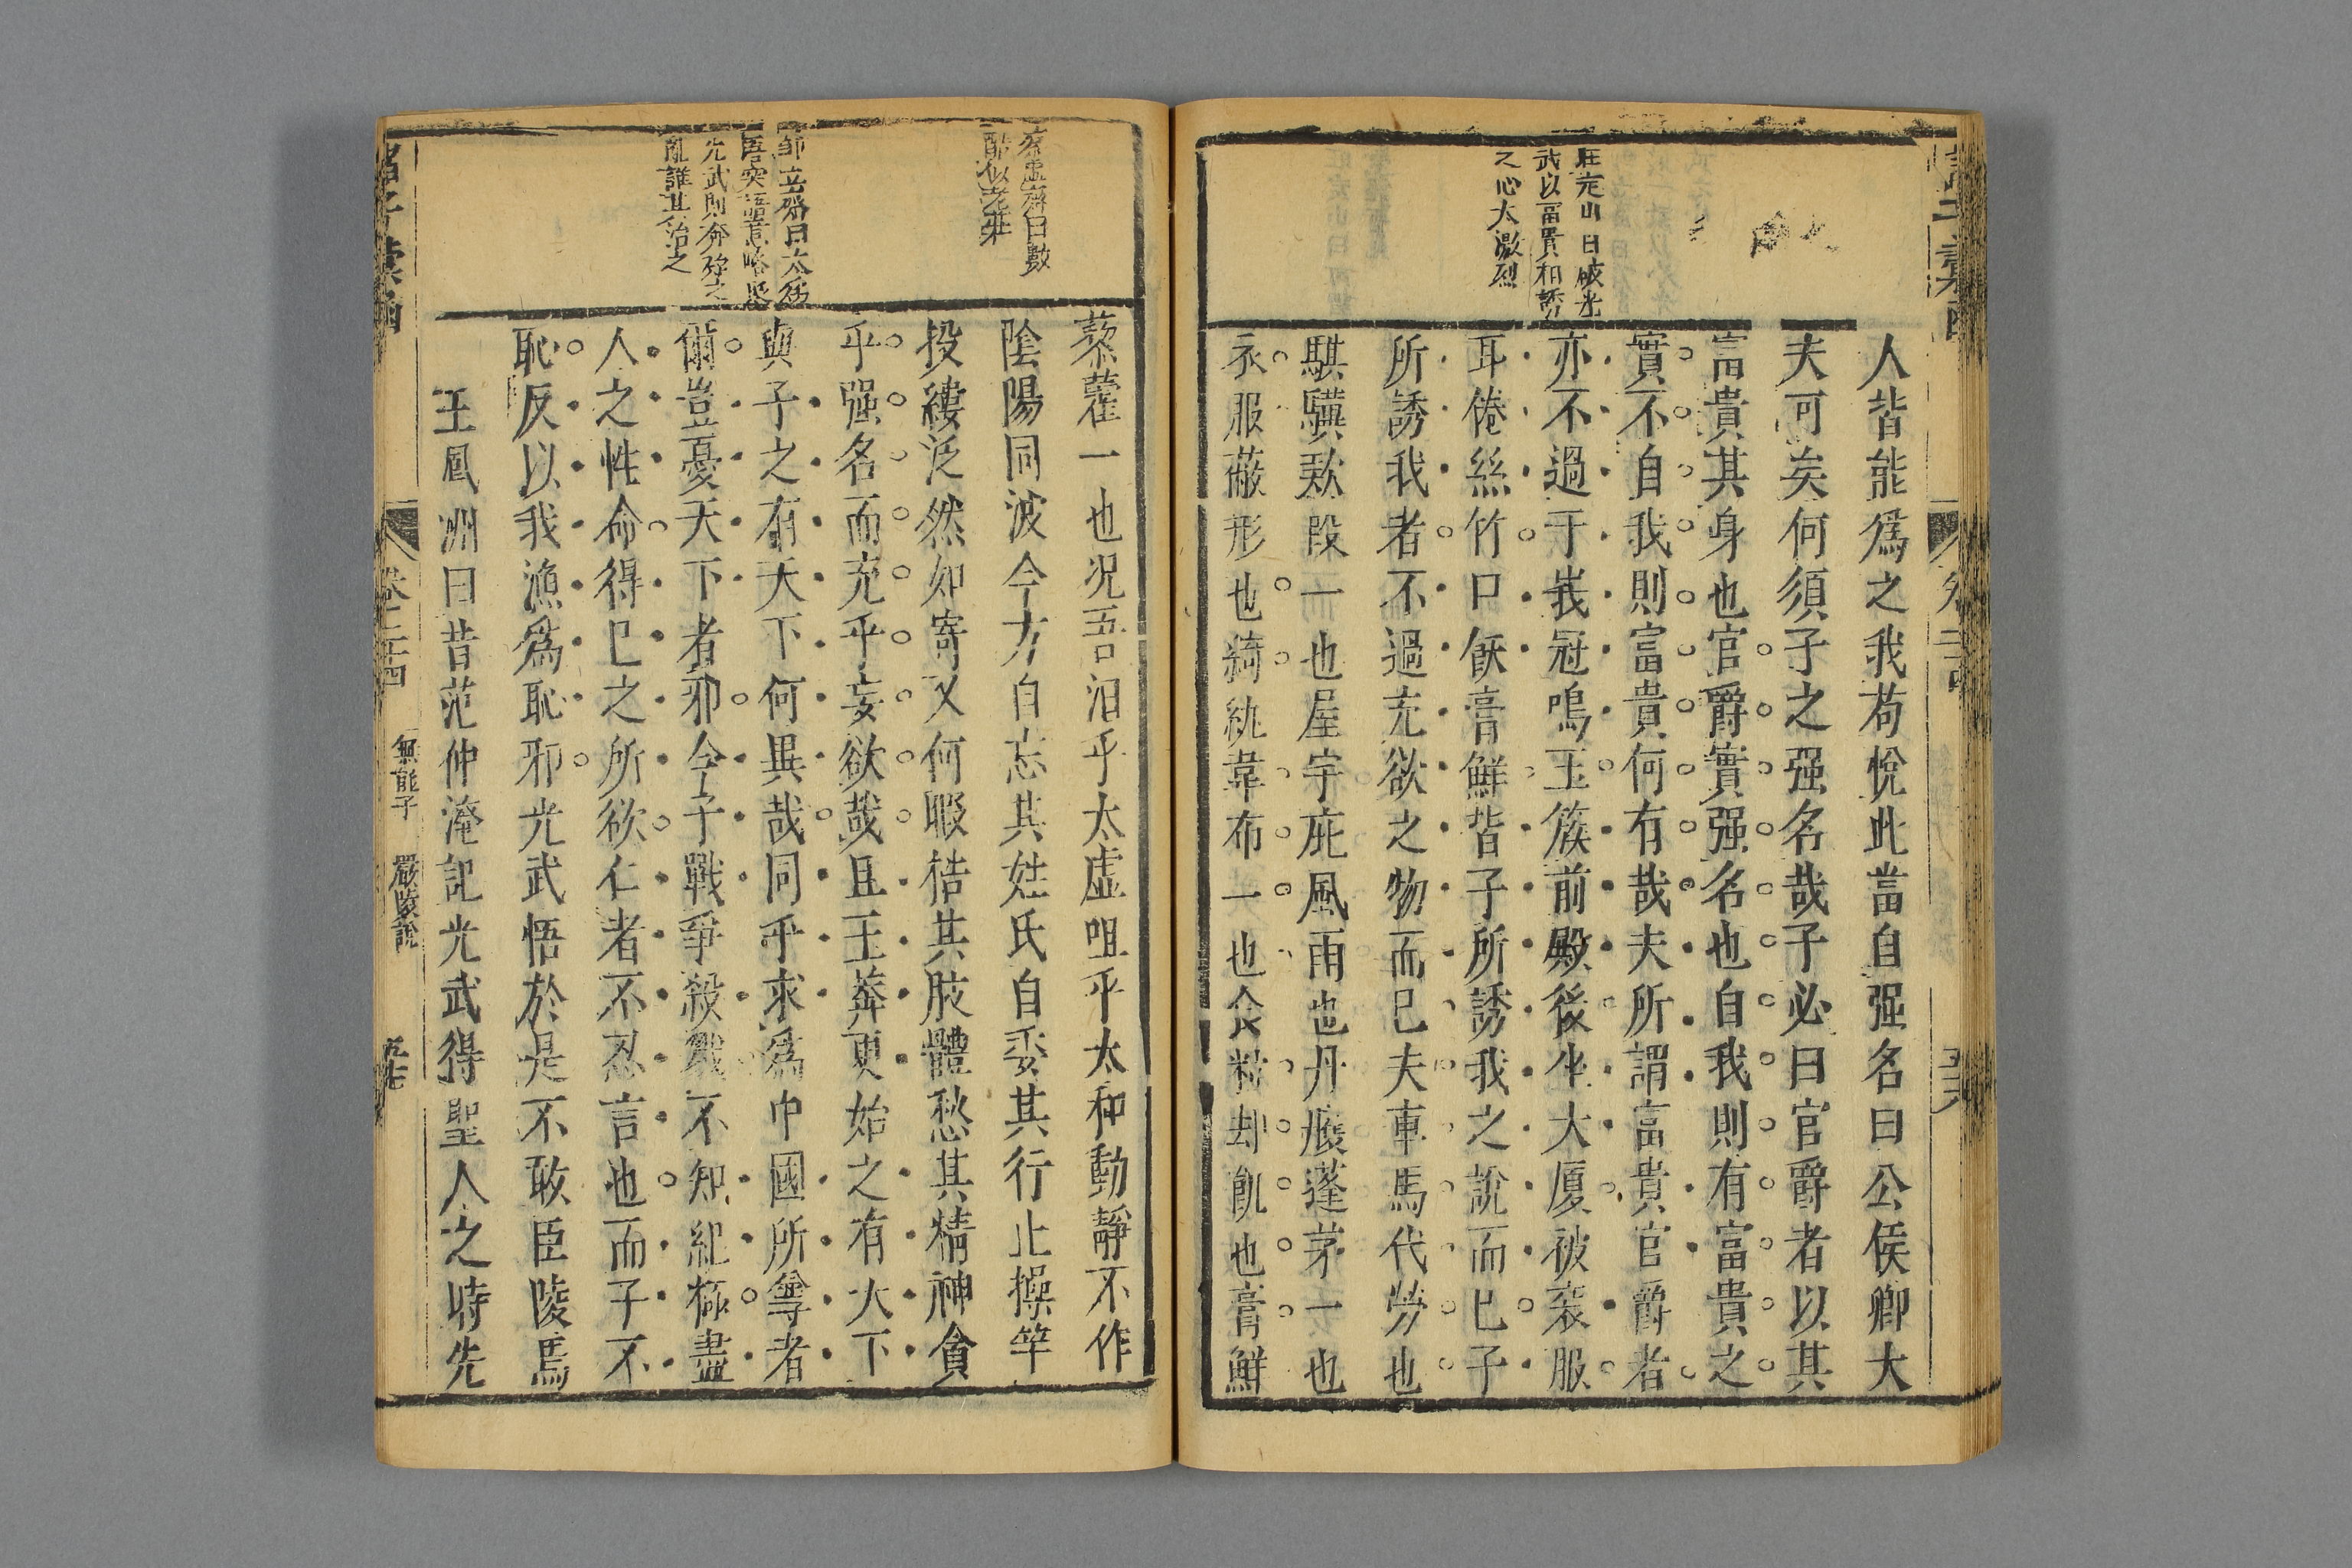 莊定山曰破光
武以富貴相誘
之心太激烈
人皆能爲之我苟悅此當自强名曰公侯卿大
夫可矣何須子之强名哉子必曰官爵者以其
富貴其身也官爵實强名也自我則有富貴之
實不自我則富貴何有哉夫所謂富貴官爵者
亦不過于峩冠鳴玉簇前殿後坐大厦被衮服
耳倦絲竹口飫膏鮮皆子所誘我之說而巳子
所誘我者不過充欲之物而巳夫車馬代勞也
騏驥欵段一也屋宇庇風雨也丹臒蓬茅一也
衣服蔽形也綺紈韋布一也食粒却飢也膏鮮
蔡虚齋曰數
語酷似老莊
藜藿一也况吾汨乎太虚咀乎太和動靜不作
陰陽同波今方自忘其姓氏自委其行止操竿
投縷泛然如寄又何暇梏其肢體愁其精神貪
乎强名而充乎妄欲哉且王莽更始之有大下
與子之有天下何異哉同乎求爲中國所尊者
爾豈憂天下者邪今子戰爭殺戮不知紀極盡
人之性命得巳之所欲仁者不忍言也而子不
恥反以我漁爲恥邪光武悟於是不敢臣陵焉
王鳳洲曰昔范仲淹記光武得聖人之時先
光武則奔殍之
亂誰其治之
卷二十四
無能子
嚴陵說
五七